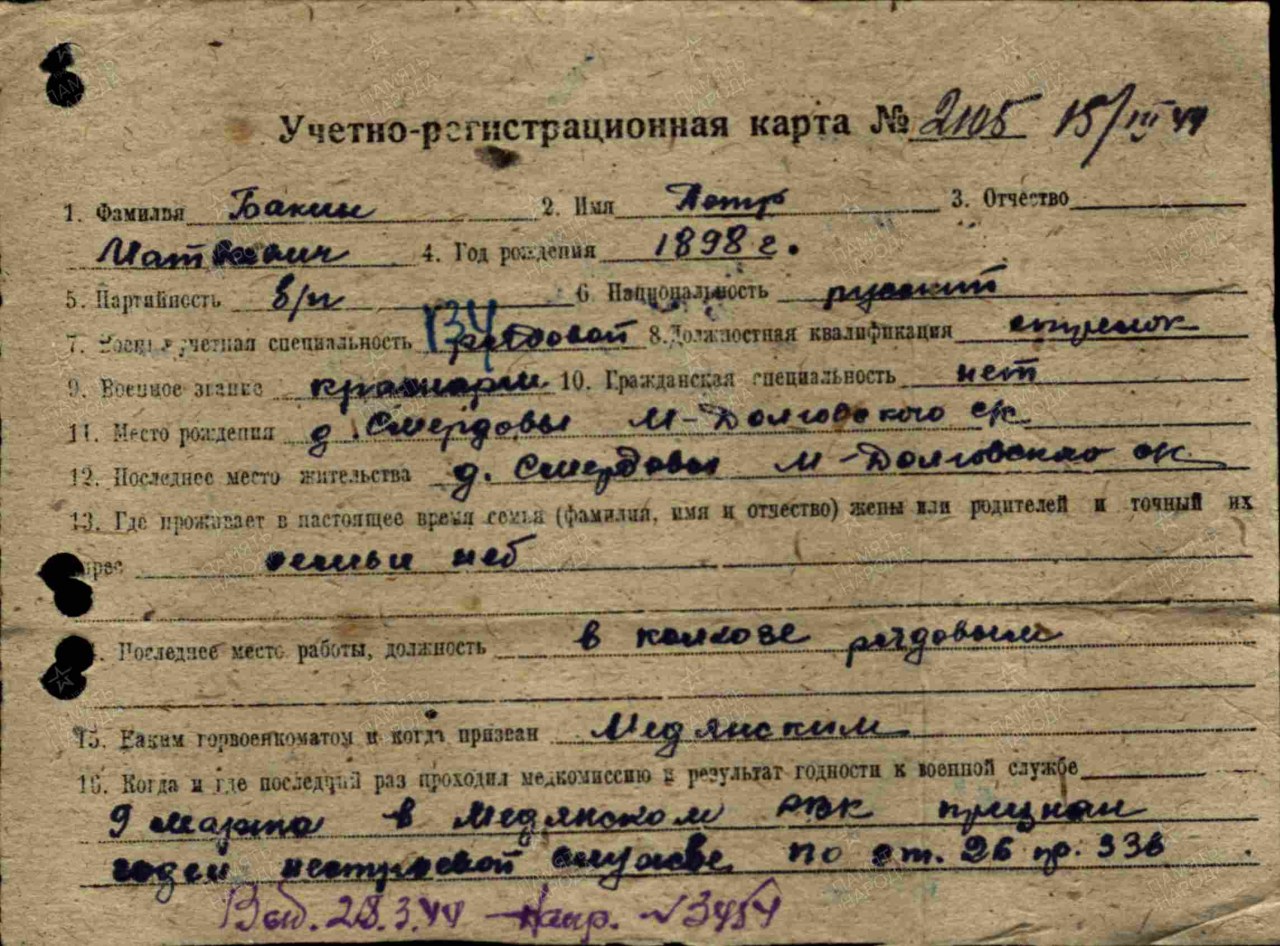 Учетно-регистрационная карта № 2105 15/III 44
1. Фамилья Бакин 2. Имя Петр 3. Отчество
Матвеевич 4. Год рождения 1898 г.
5. Партийность б/п 6 Национальность русский
7. Военно учетная специальность 134 рядовой 8. Должностная квалификация стрелок
9. Военное звание красноарм 10. Гражданская специальность нет
11. Место рождения д. Смердовы М-Долговского с/с
12. Последнее место жительства д. Смердовы М-Долговского с/с
13. Где проживает в настоящее время семья (фамилия, имя и отчество) жены или родителей и точный их
адрес семьи нет
Последнее место работы, должность в колхозе рядовым
15. Каким горвоенкоматом и когда призван Медянским
16. Когда и где последний раз проходил медкомиссию и результат годности к военной службе
9 марта в Медянском РВК признан
годен нестроевой службе по ст. 26 пр. 336
28.3.44 Напр. №